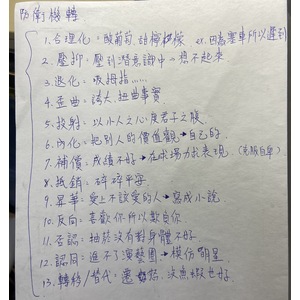 防衛機轉
1. 合理化：酸葡萄.甜檸檬 ex.因為塞車所以遲到
2. 壓抑：壓到潛意識中→想不起來
3. 退化：吸拇指……
4. 歪曲：誇大.扭曲事實
5. 投射：以小人之心度君子之腹
6. 內化：把別人的價值觀→自己的
7. 補償：成績不好→在球場力求表現.(克服自卑)
8. 抵銷：碎碎平安
9. 昇華：愛上不該愛的人→寫成小說
10. 反向：喜歡你所以欺負你
11. 否認：抽菸沒有對身體不好
12. 認同：進不了演藝圈→模仿明星
13. 轉移/替代：遷怒,沒魚蝦也好.